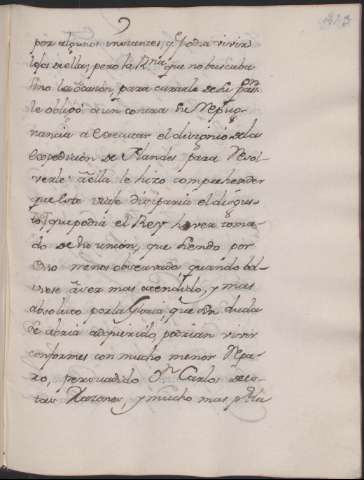 413
por algunos instantes, q̃ podia vivir
lejos de ella, pero la Rna que no buscaba
sino la ocasion, para curarle de su pon
le obligó aun contra su Repug-
nancia a executar el designio de la
expedicion de Flandes para Resol-
verle a ella le hizo comprehender
que este viaje disiparia el disgus-
to, que podia el Rey haver toma-
do de su union, que siendo por
esso menos observados quando bol-
viese a ver mas atendido, y mas
absoluto por la Gloria, que sin duda
se abria adquerido, podrian vivir
conformes con mucho menor Repa-
ro, persuadido Dn Carlos de es-
tas Razones, y mucho mas p.r la